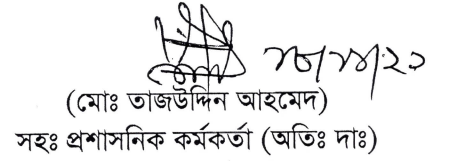 (মোঃ তাজউদ্দিন আহমেদ)
সহঃ প্রশাসনিক কর্মকর্তা (অতিঃ দাঃ)